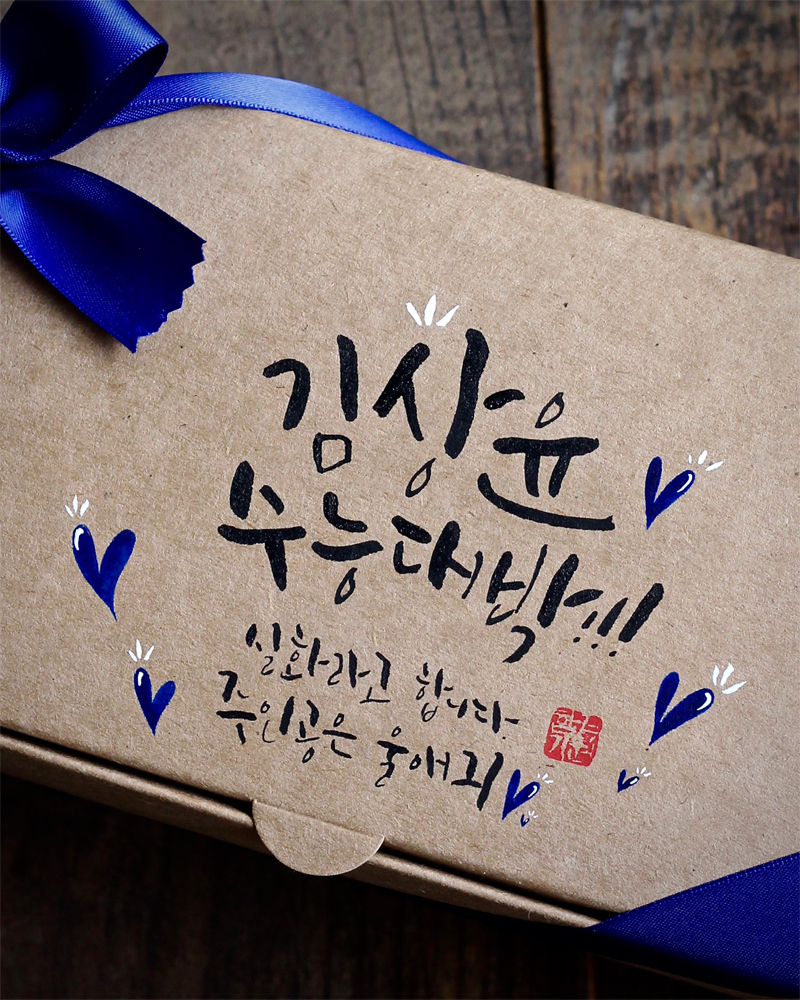 김상윤
수능대박!!!
실화라고 합니다
주인공은 울애긔